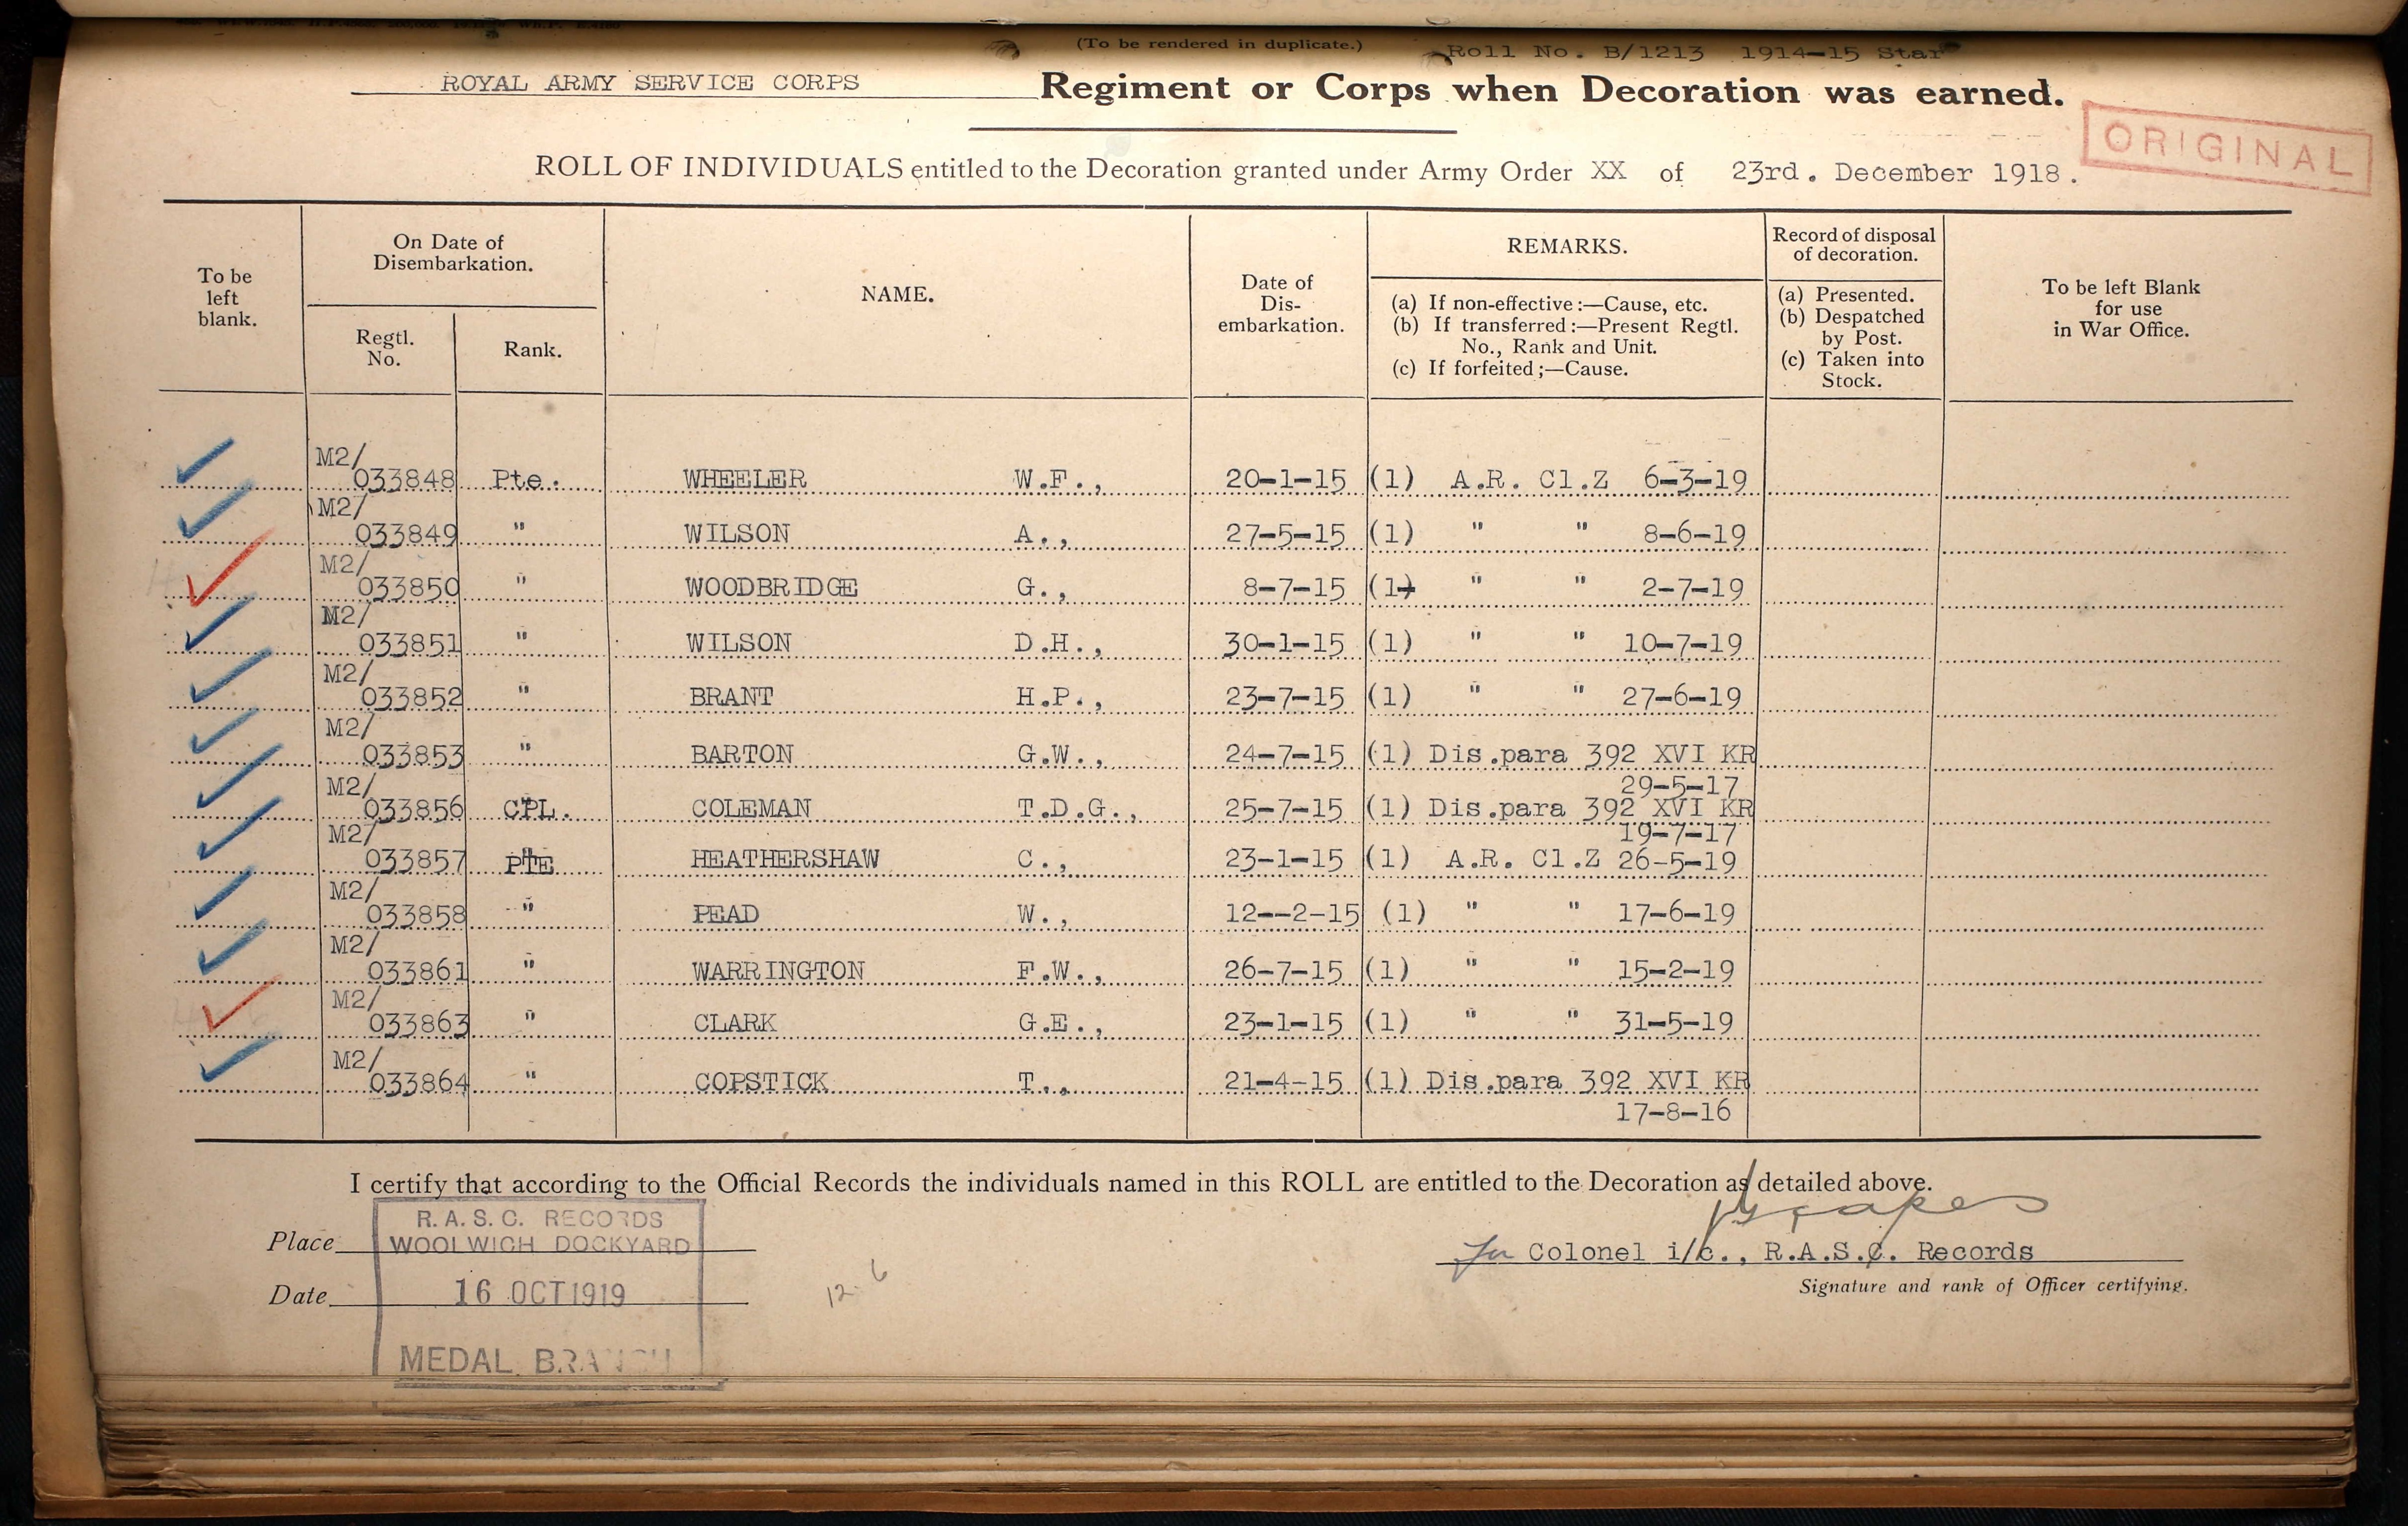 (To be rendered in duplicate.) Roll No. B/1213 1914-15 Star
ROYAL ARMY SERVICE CORPS Regiment or Corps when Decoration was earned.
ORIGINAL
ROLL OF INDIVIDUALS entitled to the Decoration granted under Army Order XX of 23rd. December 1918.
To be left blank.
On Date of Disembarkation.
Regtl. No.
Rank.
NAME.
Date of Dis-embarkation.
REMARKS.
(a) If non-effective:—Cause, etc.
(b) If transferred:—Present Regtl. No., Rank and Unit.
(c) If forfeited;—Cause.
Record of disposal of decoration.
(a) Presented.
(b) Despatched by Post.
(c) Taken into Stock.
To be left Blank for use in War Office.
M2/
033848 Pte. WHEELER W.F., 20-1-15 (1) A.R. Cl.Z 6-3-19
M2/
033849 " WILSON A., 27-5-15 (1) " " 8-6-19
M2/
033850 " WOODBRIDGE G., 8-7-15 (1) " " 2-7-19
M2/
033851 " WILSON D.H., 30-1-15 (1) " " 10-7-19
M2/
033852 " BRANT H.P., 23-7-15 (1) " " 27-6-19
M2/
033853 " BARTON G.W., 24-7-15 (1) Dis.para 392 XVI KR
29-5-17
M2/
033856 CPL. COLEMAN T.D.G., 25-7-15 (1) Dis.para 392 XVI KR
19-7-17
M2/
033857 PTE HEATHERSHAW C., 23-1-15 (1) A.R. Cl.Z 26-5-19
M2/
033858 " PEAD W., 12--2-15 (1) " " 17-6-19
M2/
033861 " WARRINGTON F.W., 26-7-15 (1) " " 15-2-19
M2/
033863 " CLARK G.E., 23-1-15 (1) " " 31-5-19
M2/
033864 " COPSTICK T., 21-4-15 (1) Dis.para 392 XVI KR
17-8-16
I certify that according to the Official Records the individuals named in this ROLL are entitled to the Decoration as detailed above.
R.A.S.C. RECORDS
Place WOOLWICH DOCKYARD
for Colonel i/c., R.A.S.C. Records
Date 16 OCT 1919
12 6
Signature and rank of Officer certifying.
MEDAL BRANCH